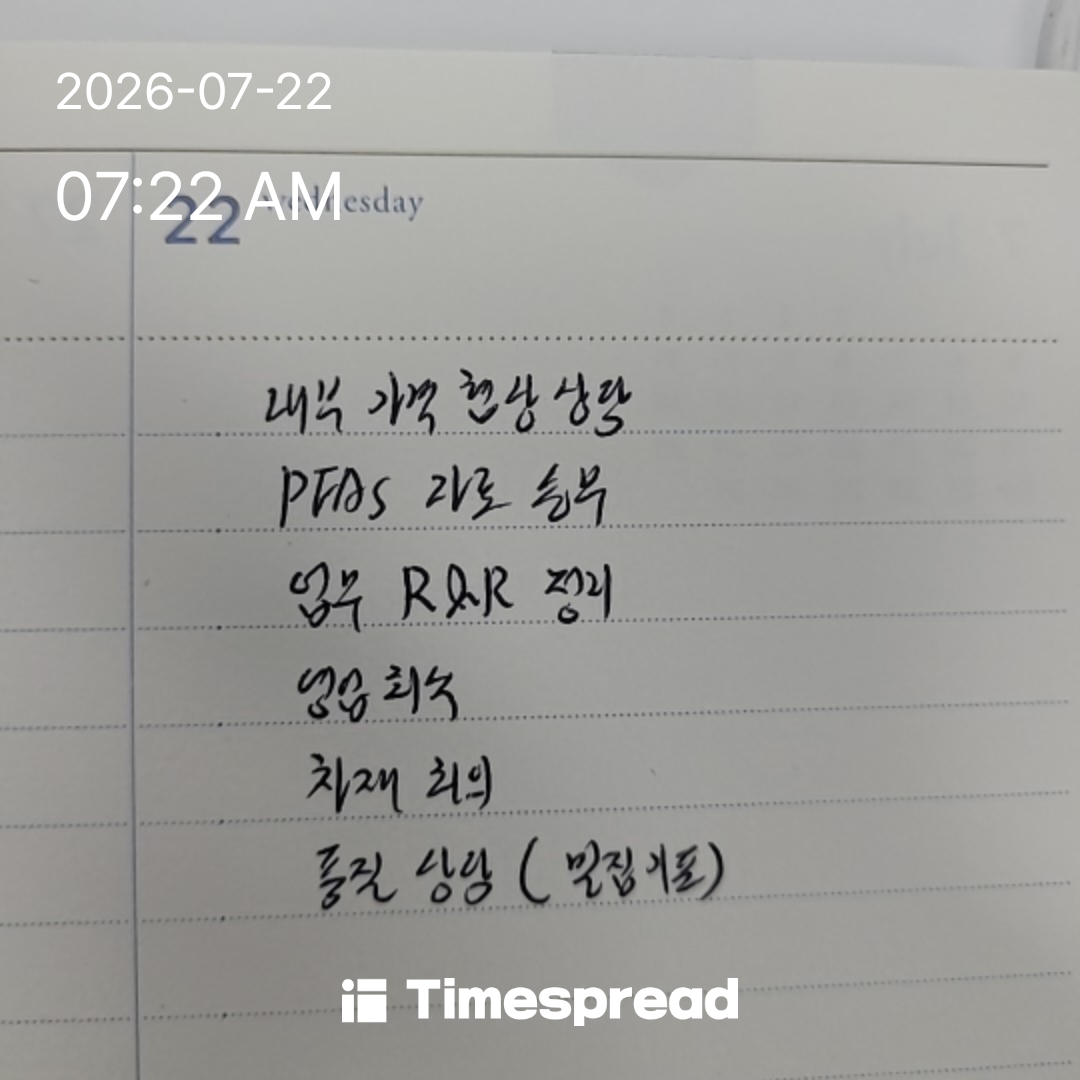 2026-07-22
07:22 AM
22 wednesday
내부 가격 협상 상담
PFAS 자료 송부
업무 R&R 정리
영업 회식
자재 회의
품질 상담 (밀집기포)
Timespread